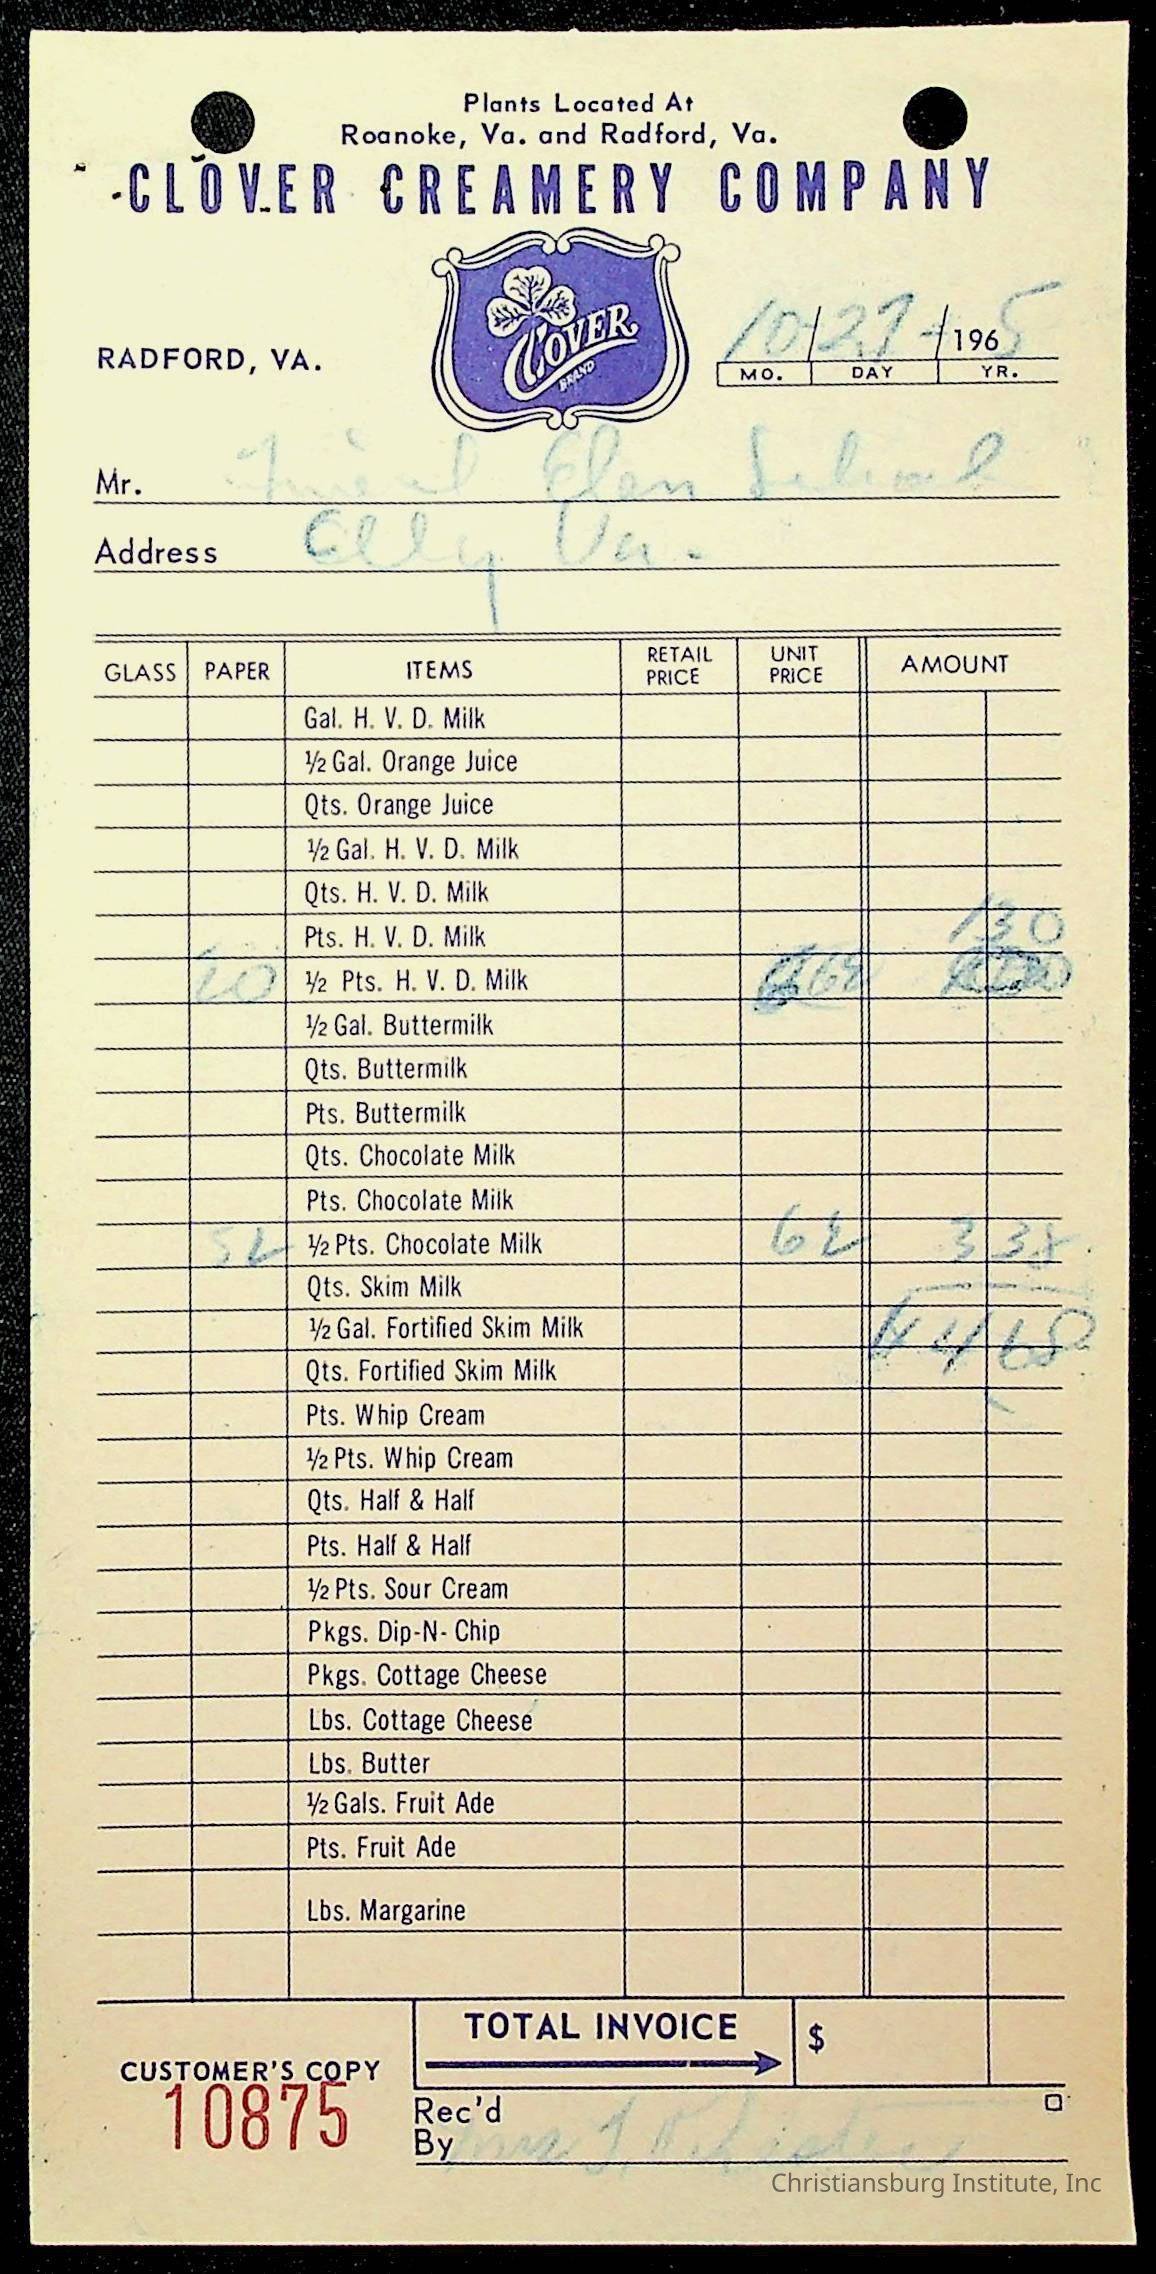 Plants Located At
Roanoke, Va. and Radford, Va.
CLOVER CREAMERY COMPANY
CLOVER
BRAND
RADFORD, VA.
10/27/1965
MO. DAY YR.
Mr. Elem School
Address Va.
GLASS PAPER ITEMS RETAIL PRICE UNIT PRICE AMOUNT
Gal. H. V. D. Milk
½ Gal. Orange Juice
Qts. Orange Juice
½ Gal. H. V. D. Milk
Qts. H. V. D. Milk
Pts. H. V. D. Milk 130
20 ½ Pts. H. V. D. Milk
½ Gal. Buttermilk
Qts. Buttermilk
Pts. Buttermilk
Qts. Chocolate Milk
Pts. Chocolate Milk
52 ½ Pts. Chocolate Milk 6½ 3 38
Qts. Skim Milk
½ Gal. Fortified Skim Milk 4 68
Qts. Fortified Skim Milk
Pts. Whip Cream
½ Pts. Whip Cream
Qts. Half & Half
Pts. Half & Half
½ Pts. Sour Cream
Pkgs. Dip-N-Chip
Pkgs. Cottage Cheese
Lbs. Cottage Cheese
Lbs. Butter
½ Gals. Fruit Ade
Pts. Fruit Ade
Lbs. Margarine
TOTAL INVOICE $
CUSTOMER'S COPY
10875
Rec'd
By Mrs
Christiansburg Institute, Inc